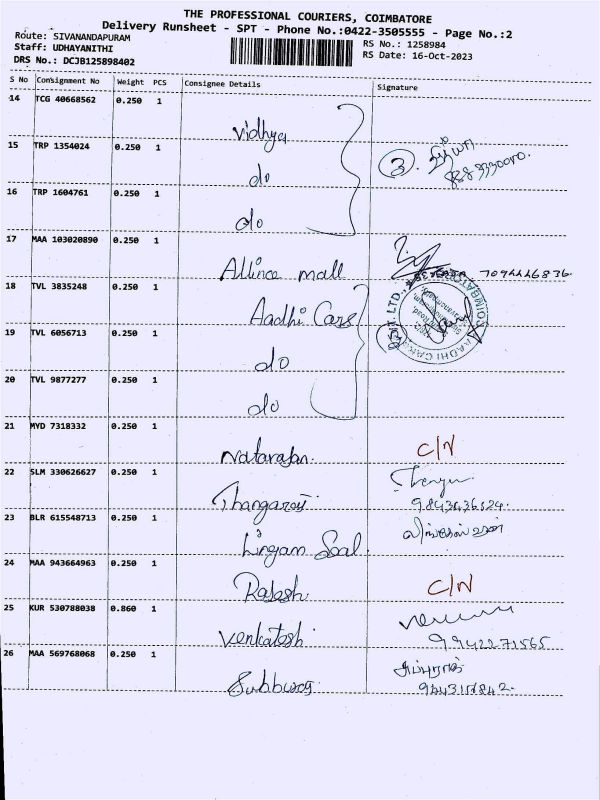 THE PROFESSIONAL COURIERS, COIMBATORE
Delivery Runsheet - SPT - Phone No.:0422-3505555 - Page No.:2
Route: SIVANANDAPURAM
Staff: UDHAYANITHI
DRS No.: DCJB125898402
RS No.: 1258984
RS Date: 16-Oct-2023
S No Consignment No Weight PCS Consignee Details Signature
14 TCG 40668562 0.250 1
Vidhya
15 TRP 1354024 0.250 1
do
3
16 TRP 1604761 0.250 1
do
17 MAA 103020890 0.250 1
Allince mall
18 TVL 3835248 0.250 1
Aadhi Cars
19 TVL 6056713 0.250 1
do
20 TVL 9877277 0.250 1
do
21 MYD 7318332 0.250 1
Natarajan. C/N
22 SLM 330626627 0.250 1
Thangaraj.
23 BLR 615548713 0.250 1
Lingam Seal.
24 MAA 943664963 0.250 1
Rajesh C/N
25 KUR 530788038 0.860 1
Venkatesh 9942271565
26 MAA 569768068 0.250 1
Subburaj.